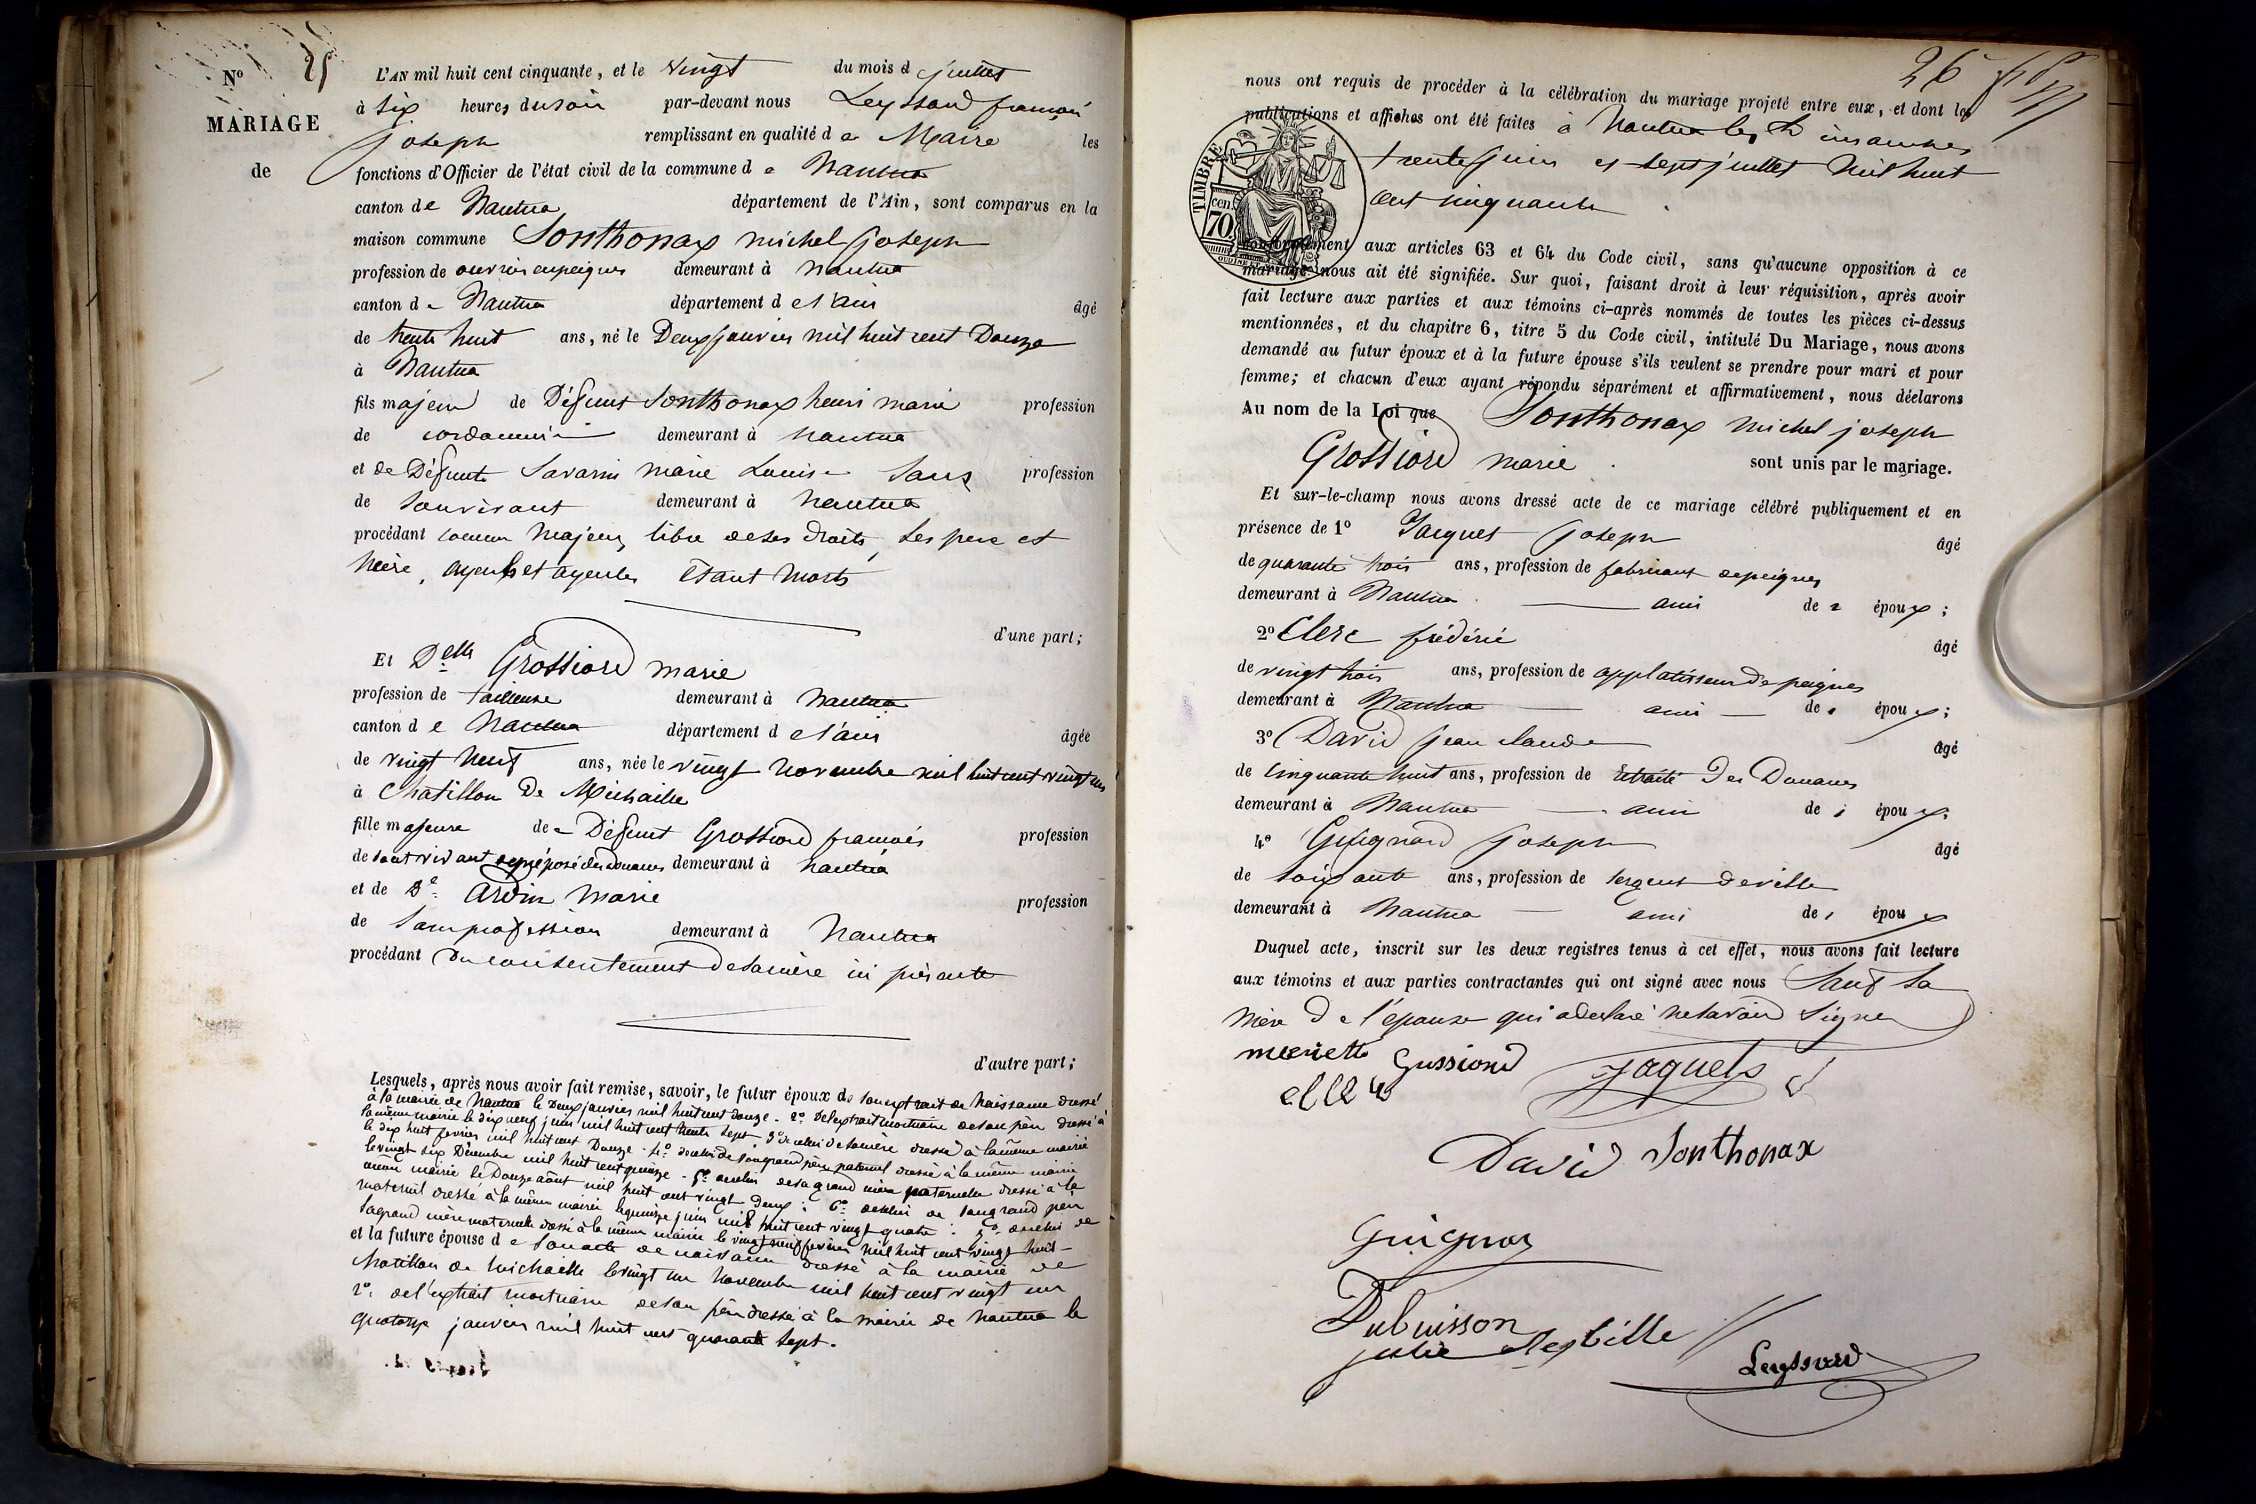 N° 25
MARIAGE
de
L'AN mil huit cent cinquante, et le vingt du mois d juillet
à six heures du soir par-devant nous Leyssard françois
joseph remplissant en qualité de Maire les
fonctions d'Officier de l'état civil de la commune de Nantua
canton de Nantua département de l'Ain, sont comparus en la
maison commune Sonthonax michel joseph
profession de ouvrier en peignes demeurant à Nantua
canton de Nantua département de l'ain âgé
de trente huit ans, né le Deux janvier mil huit cent Douze
à Nantua
fils majeur de Défunt Sonthonax henri marie profession
de cordonnier demeurant à Nantua
et de Défunte Savarin marie Louise Sans profession
de Son vivant demeurant à Nantua
procédant comme Majeur, libre de ses droits, ses père et
Mère, ayeuls et ayeules étant morts
d'une part;
Et Delle Grossiord marie
profession de tailleuse demeurant à Nantua
canton de Nantua département de l'ain âgée
de vingt neuf ans, née le vingt novembre mil huit cent vingt un
à Chatillon De Michaille
fille majeure de Défunt Grossiord francois profession
de Son vivant préposé des Douanes demeurant à Nantua
et de De Ardin Marie profession
de Sans profession demeurant à Nantua
procédant Du consentement de sa mère ici présente
d'autre part;
Lesquels, après nous avoir fait remise, savoir, le futur époux de son extrait de Naissance dressé
à la mairie de Nantua le Deux janvier mil huit cent douze. 2° De l'extrait mortuaire de son père dressé à
la même mairie le dix neuf juin mil huit cent trente sept 3° de celui de sa mère dressé à la même mairie
le dix huit fevrier mil huit cent Douze. 4° de celui de son grand père paternel dressé à la même mairie
le vingt six Décembre mil huit cent quinze. 5° de celui de sa grand mère paternelle dressé à la
même mairie le Douze août mil huit cent vingt Deux; 6° de celui de son grand père
maternel dressé à la même mairie le quinze juin mil huit cent vingt quatre; 7° de celui de
sa grand mère maternelle dressé à la même mairie le vingt neuf fevrier mil huit cent vingt huit
et la future épouse de son acte de naissance dressé à la mairie de
Chatillon de Michaille le vingt un Novembre mil huit cent vingt un
2° de l'extrait mortuaire de son père dressé à la mairie de Nantua le
quatorze janvier mil huit cent quarante sept.
26
nous ont requis de procéder à la célébration du mariage projeté entre eux, et dont les
publications et affiches ont été faites à Nantua les dimanches
trente juin et sept juillet Mil huit
cent cinquante
TIMBRE
70 cen.
conformément aux articles 63 et 64 du Code civil, sans qu'aucune opposition à ce
mariage nous ait été signifiée. Sur quoi, faisant droit à leur réquisition, après avoir
fait lecture aux parties et aux témoins ci-après nommés de toutes les pièces ci-dessus
mentionnées, et du chapitre 6, titre 5 du Code civil, intitulé Du Mariage, nous avons
demandé au futur époux et à la future épouse s'ils veulent se prendre pour mari et pour
femme; et chacun d'eux ayant répondu séparément et affirmativement, nous déclarons
Au nom de la Loi que Sonthonax michel joseph
Grossiord marie sont unis par le mariage.
Et sur-le-champ nous avons dressé acte de ce mariage célébré publiquement et en
présence de 1° Jacquet joseph âgé
de quarante trois ans, profession de fabricant de peignes
demeurant à Nantua ami des époux;
2° Clerc frédéric âgé
de vingt trois ans, profession de applatisseur De peignes
demeurant à Nantua ami des époux;
3° David jean claude âgé
de Cinquante huit ans, profession de retraité Des Douanes
demeurant à Nantua ami des époux;
4° Guignard joseph âgé
de Soixante ans, profession de Sergent de ville
demeurant à Nantua ami des époux
Duquel acte, inscrit sur les deux registres tenus à cet effet, nous avons fait lecture
aux témoins et aux parties contractantes qui ont signé avec nous Sauf la
Mère De l'épouse qui a declaré ne savoir Signer
mariette Gussiord Jaquets
David Sonthonax
Guignar
Dubuisson
julie
Leyssard